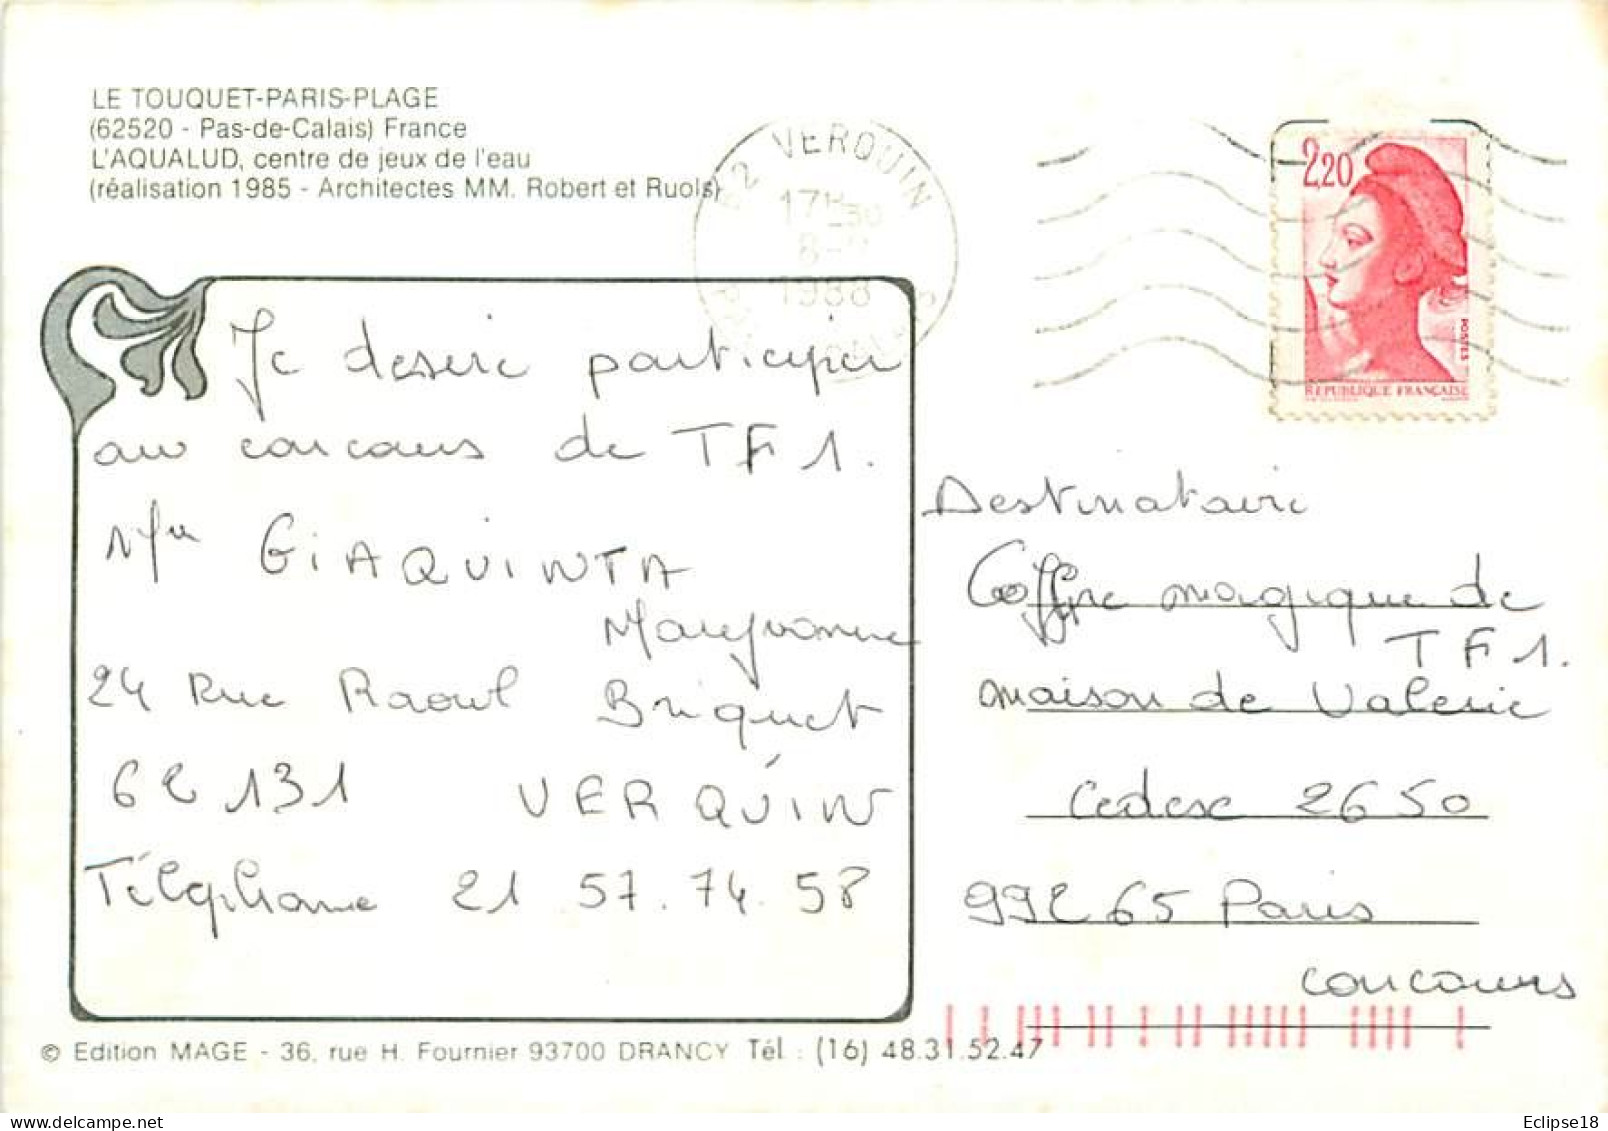 LE TOUQUET-PARIS-PLAGE
(62520 - Pas-de-Calais) France
L'AQUALUD, centre de jeux de l'eau
(réalisation 1985 - Architectes MM. Robert et Ruols)
62 VERQUIN
17H30
8-
1988
2,20
POSTES
REPUBLIQUE FRANÇAISE
Je desire participer
au concours de TF1.
GIAQUINTA
Maryvonne
24 Rue Raoul Briquet
62131 VERQUIN
Téléphone 21.57.74.58
Destinataire
Coffre magique de
TF1.
maison de Valerie
Cedex 2650
99265 Paris
concours
© Edition MAGE - 36, rue H. Fournier 93700 DRANCY Tél : (16) 48.31.52.47
Eclipse18